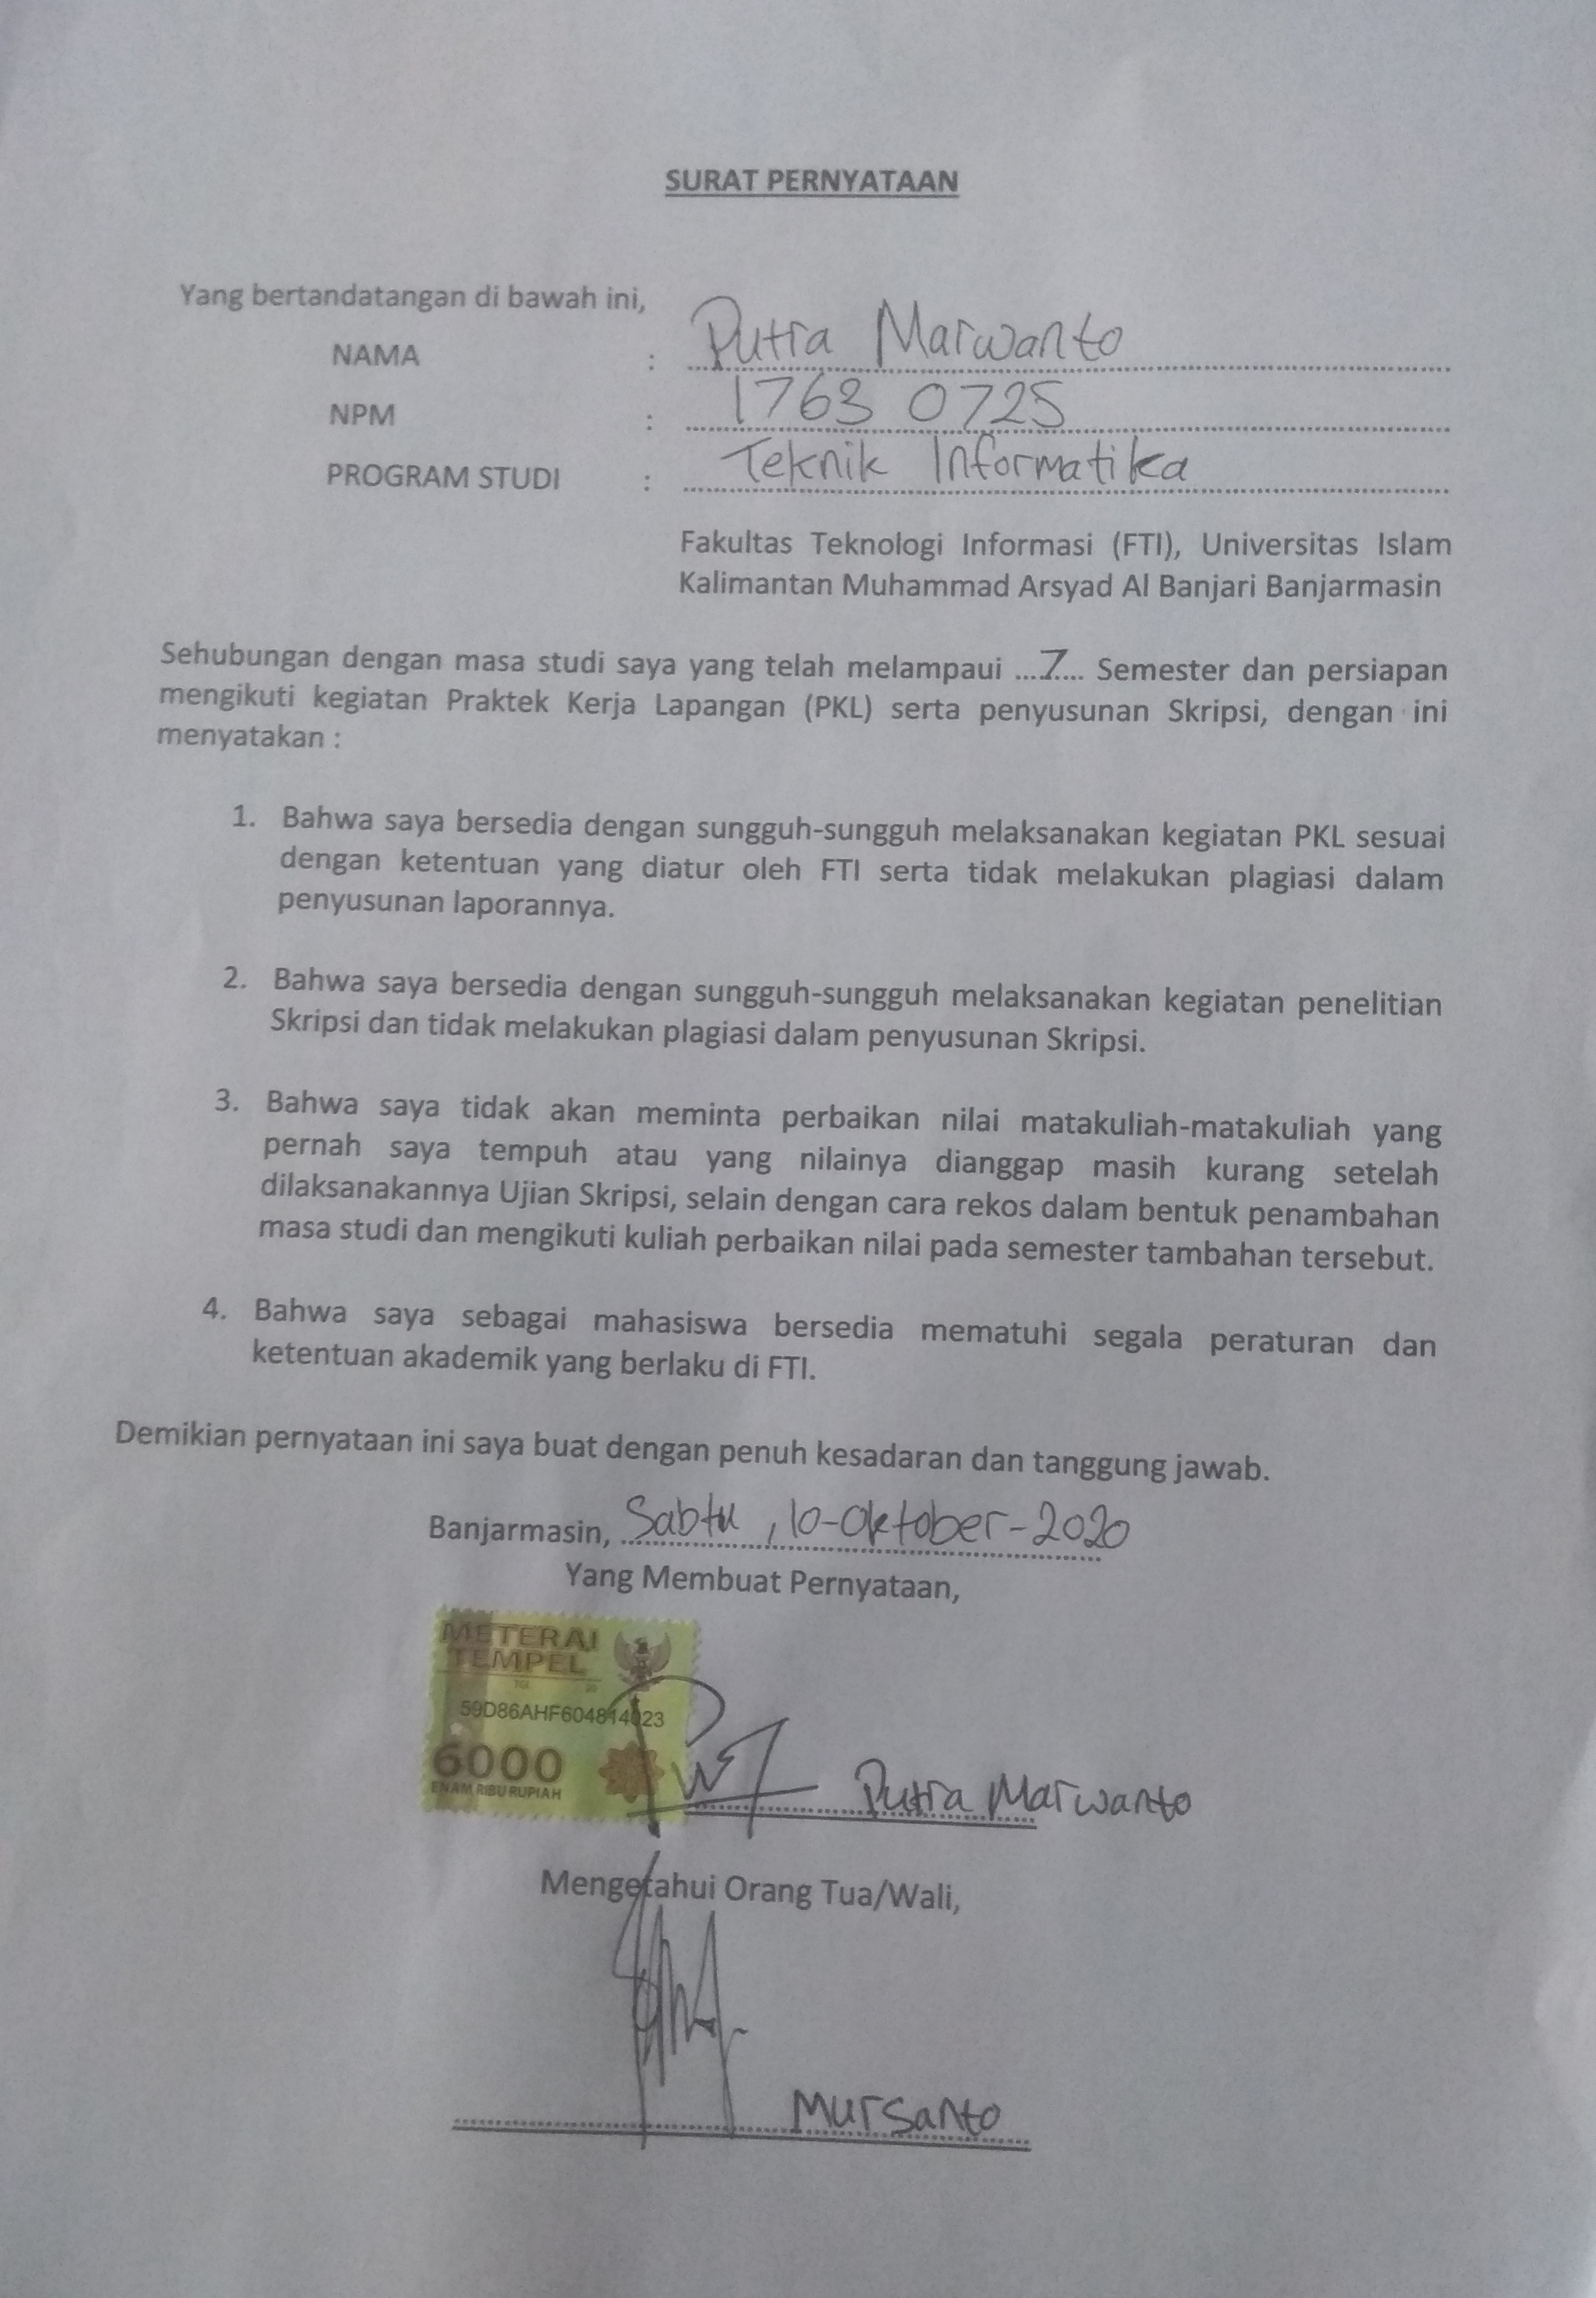 SURAT PERNYATAAN
Yang bertandatangan di bawah ini,
NAMA : Putra Marwanto
NPM : 1763 0725
PROGRAM STUDI : Teknik Informatika
Fakultas Teknologi Informasi (FTI), Universitas Islam
Kalimantan Muhammad Arsyad Al Banjari Banjarmasin
Sehubungan dengan masa studi saya yang telah melampaui ....7.... Semester dan persiapan
mengikuti kegiatan Praktek Kerja Lapangan (PKL) serta penyusunan Skripsi, dengan ini
menyatakan :
1. Bahwa saya bersedia dengan sungguh-sungguh melaksanakan kegiatan PKL sesuai
dengan ketentuan yang diatur oleh FTI serta tidak melakukan plagiasi dalam
penyusunan laporannya.
2. Bahwa saya bersedia dengan sungguh-sungguh melaksanakan kegiatan penelitian
Skripsi dan tidak melakukan plagiasi dalam penyusunan Skripsi.
3. Bahwa saya tidak akan meminta perbaikan nilai matakuliah-matakuliah yang
pernah saya tempuh atau yang nilainya dianggap masih kurang setelah
dilaksanakannya Ujian Skripsi, selain dengan cara rekos dalam bentuk penambahan
masa studi dan mengikuti kuliah perbaikan nilai pada semester tambahan tersebut.
4. Bahwa saya sebagai mahasiswa bersedia mematuhi segala peraturan dan
ketentuan akademik yang berlaku di FTI.
Demikian pernyataan ini saya buat dengan penuh kesadaran dan tanggung jawab.
Banjarmasin, Sabtu, 10-Oktober-2020
Yang Membuat Pernyataan,
METERAI
TEMPEL
59D86AHF604814023
6000
ENAM RIBU RUPIAH
Putra Marwanto
Mengetahui Orang Tua/Wali,
Mursanto